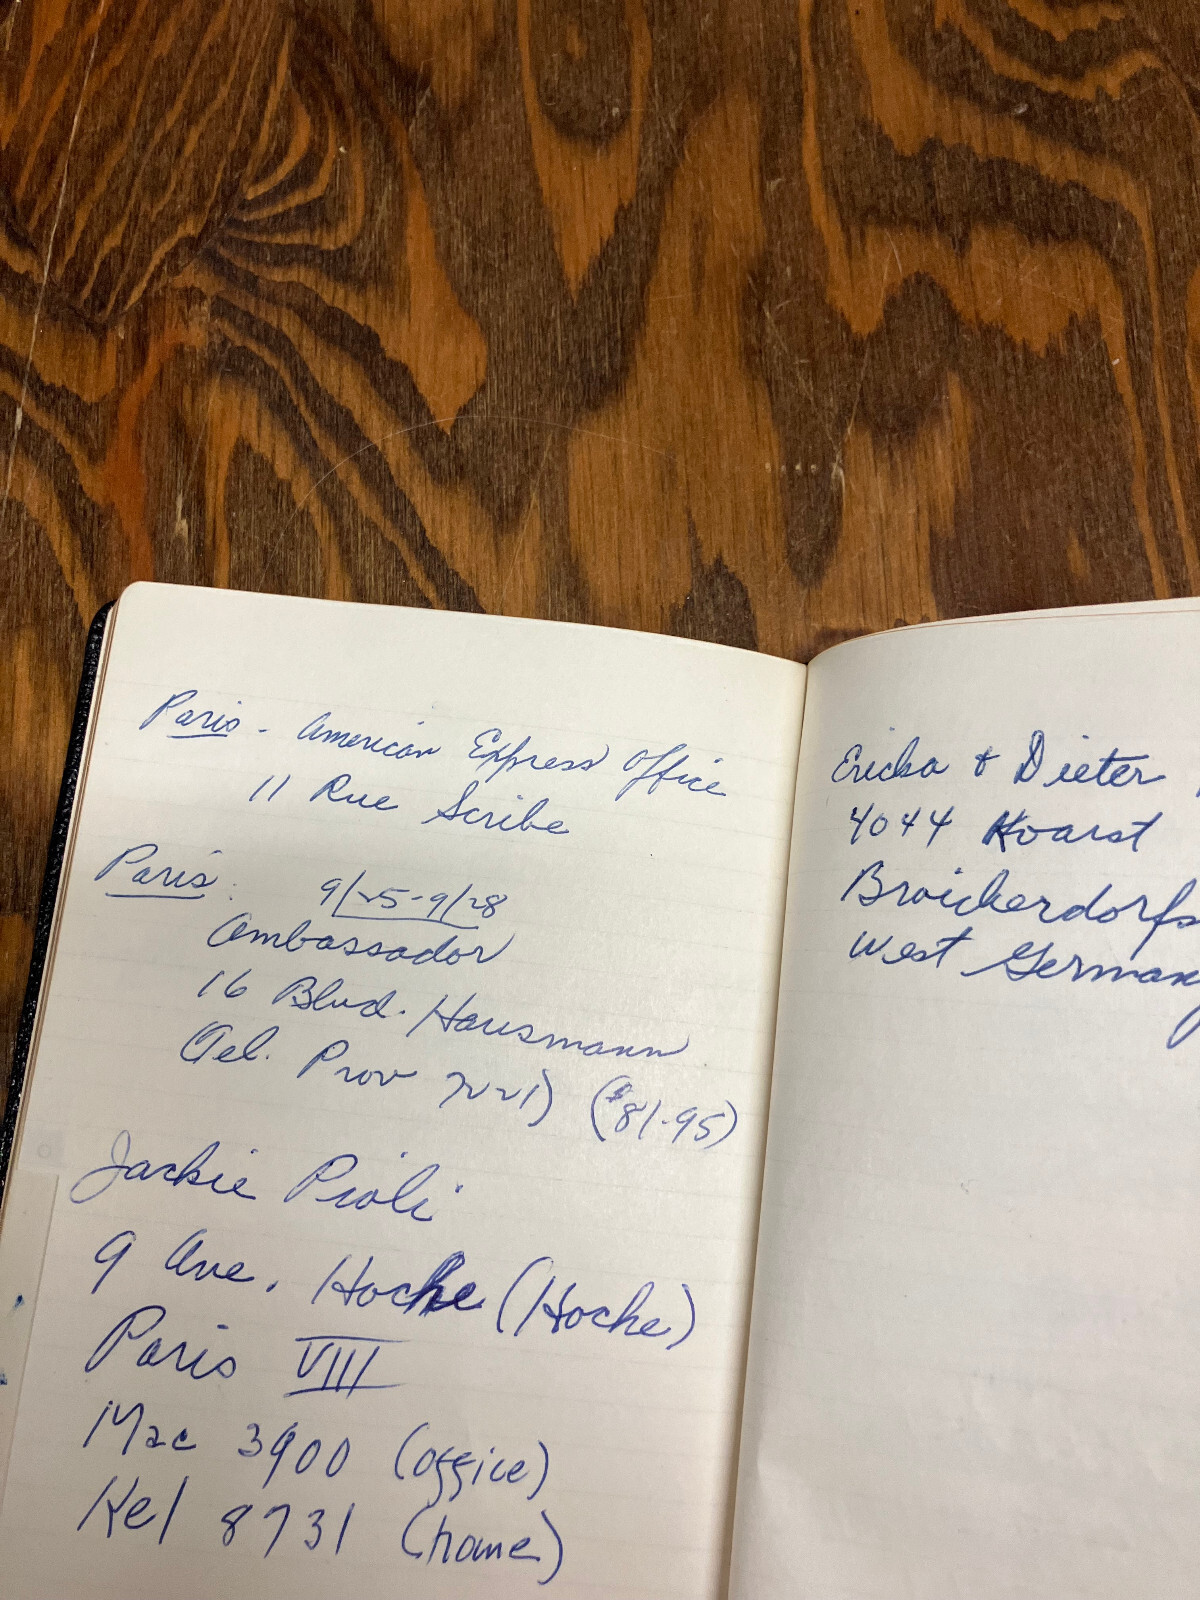 Paris - American Express Office
11 Rue Scribe
Paris: 9/25-9/28
Ambassador
16 Blvd. Hausmann
Tel. Prov 7221) ($81.95)
Jackie Pioli
9 Ave. Hoche (Hoche)
Paris VIII
Mac 3900 (office)
Kel 8731 (home)
Ericka & Dieter
4044 Koarst
Broickerdorfs
West Germany